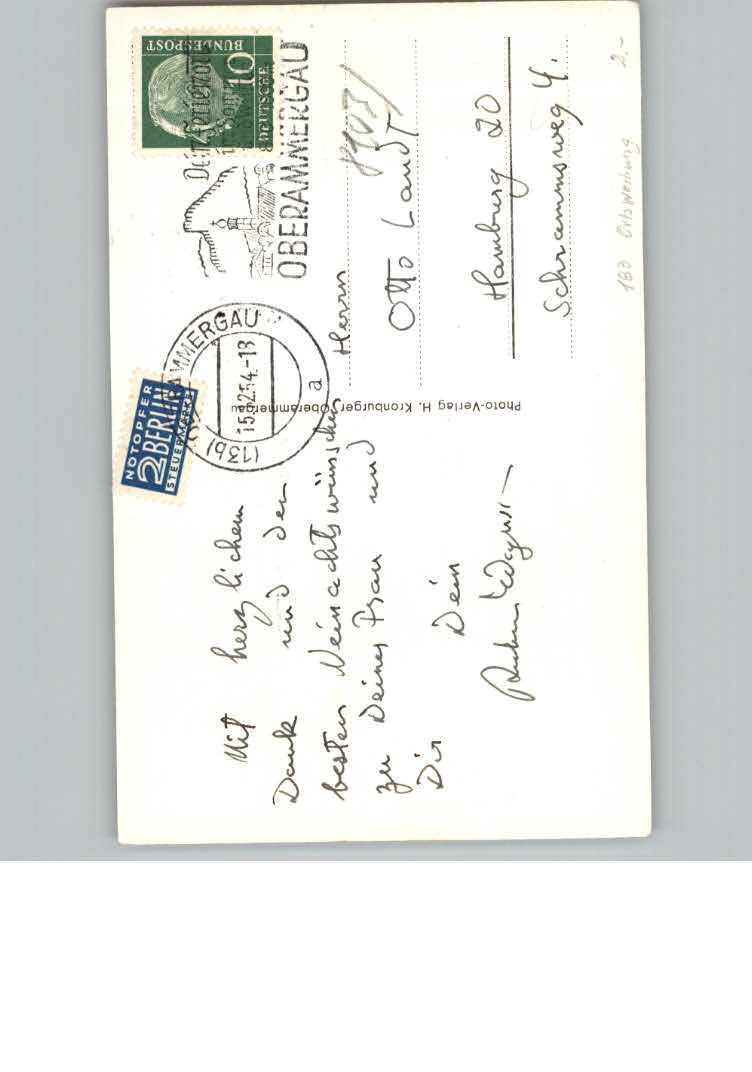 Mit herzlichem
Dank und den
besten Weinachtswünschen
zu Deiner Frau und
Dir
Dein
Photo-Verlag H. Kronburger, Oberammergau
NOTOPFER
2 BERLIN
STEUERMARKE
(13b) OBERAMMERGAU
15.12.54.-18
a
Dein Ferienort
OBERAMMERGAU
DEUTSCHE
BUNDESPOST
10
Herrn
Otto Landt
Hamburg 20
Schrammsweg 4.
183 Ortswerbung 2,-